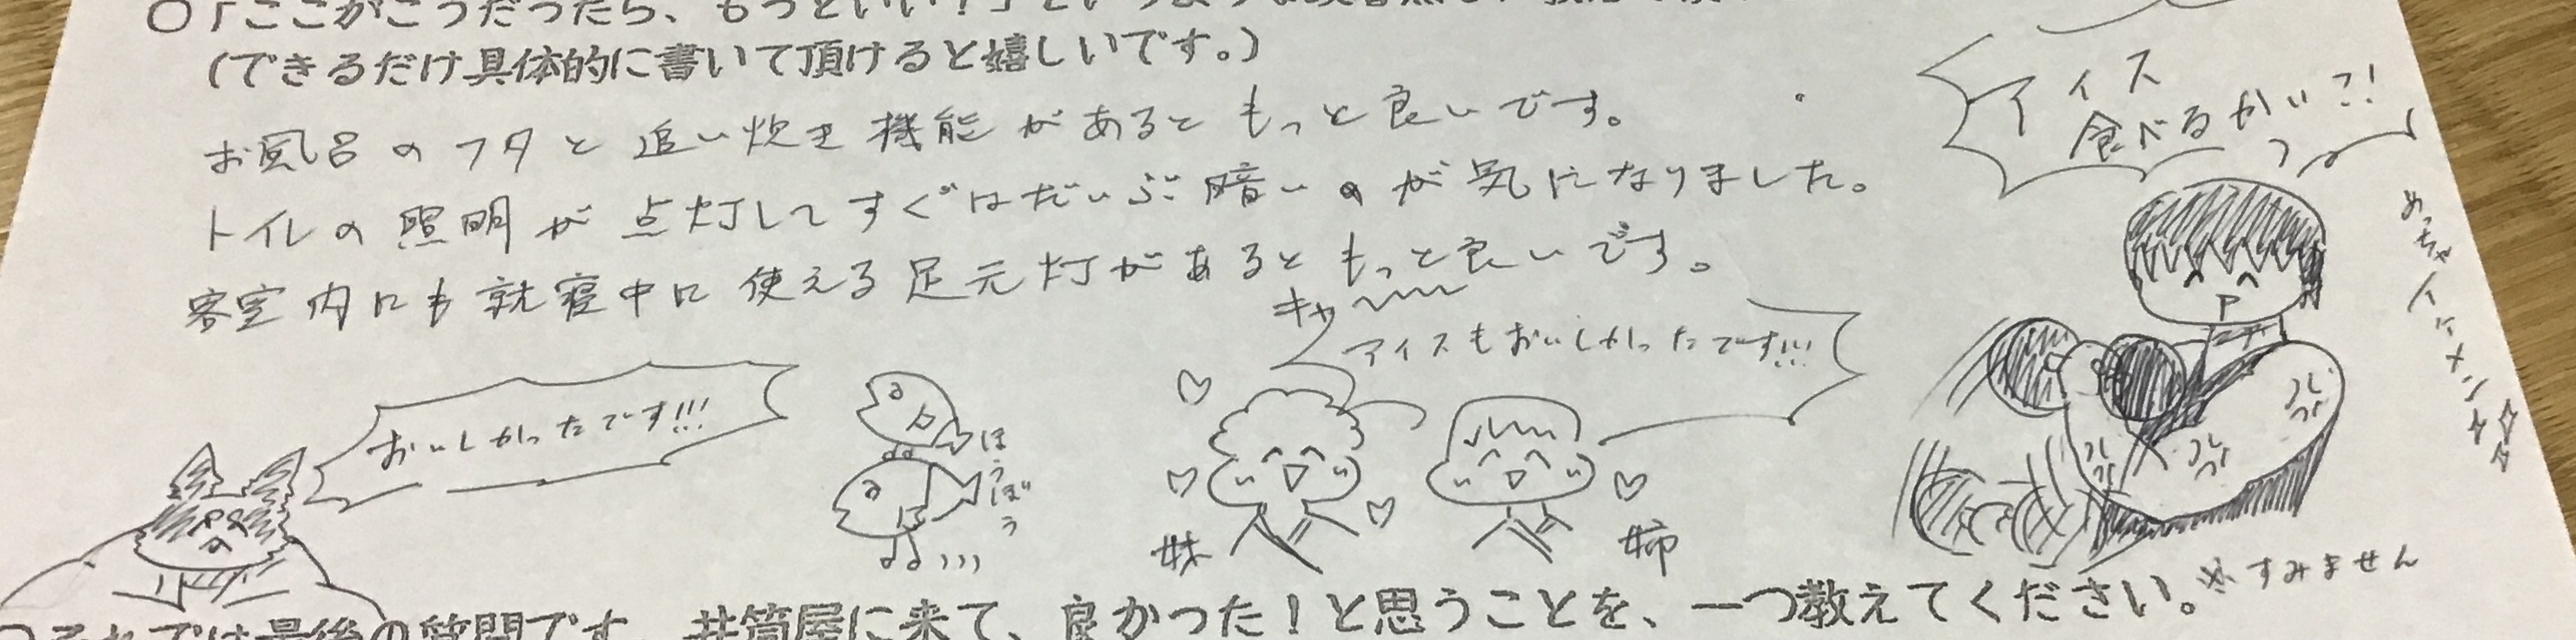 ○「ここがこうだったら、もっといい！」というような
(できるだけ具体的に書いて頂けると嬉しいです。)
お風呂のフタと追い炊き機能があるともっと良いです。
トイレの照明が点灯してすぐはだいぶ暗いのが気になりました。
客室内にも就寝中に使える足元灯があるともっと良いです。
アイス
食べるかい？！
めっちゃイケメン
キャ〜〜〜
アイスもおいしかったです!!!
おいしかったです!!!
ほうぼう
妹
姉
※すみません
それでは最後の質問です。井筒屋に来て、良かった！と思うことを、一つ教えてください。